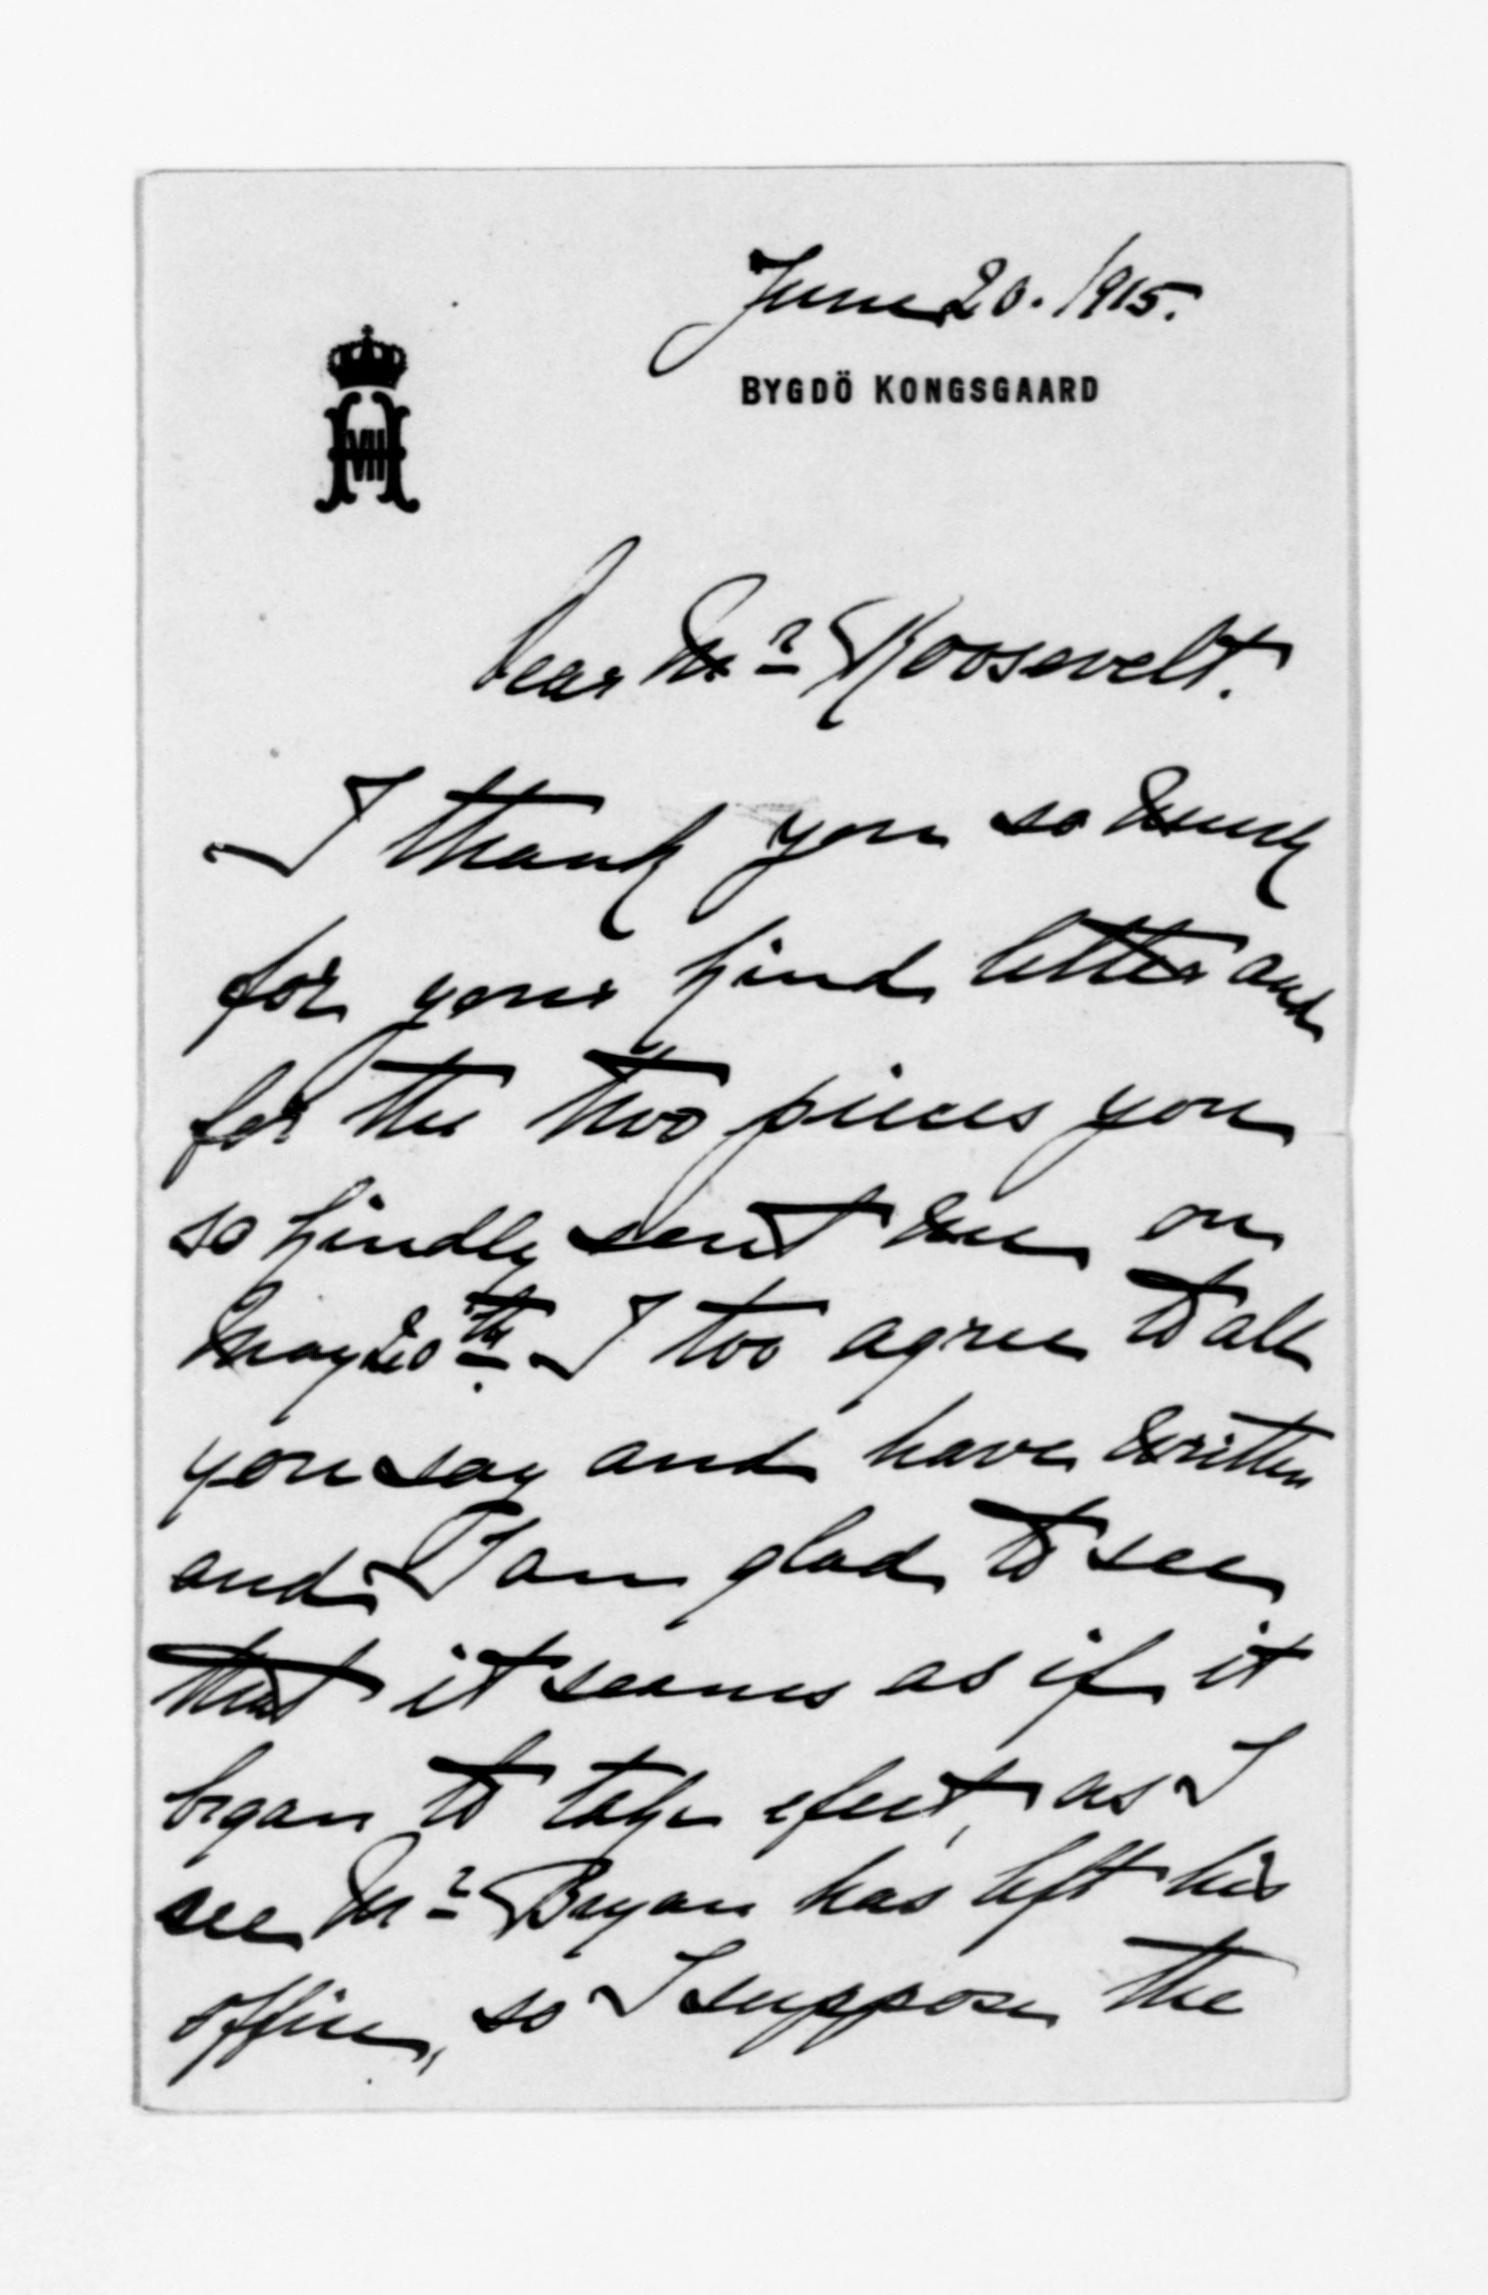 June 20. 1915.
BYGDÖ KONGSGAARD
HVII
Dear Mr Roosevelt.
I thank you so much
for your kind letter and
for the two pieces you
so kindly sent me on
May 20th. I too agree to all
you say and have written
and I am glad to see
that it seems as if it
began to take efect, as I
see Mr Bryan has left his
office, so I suppose the